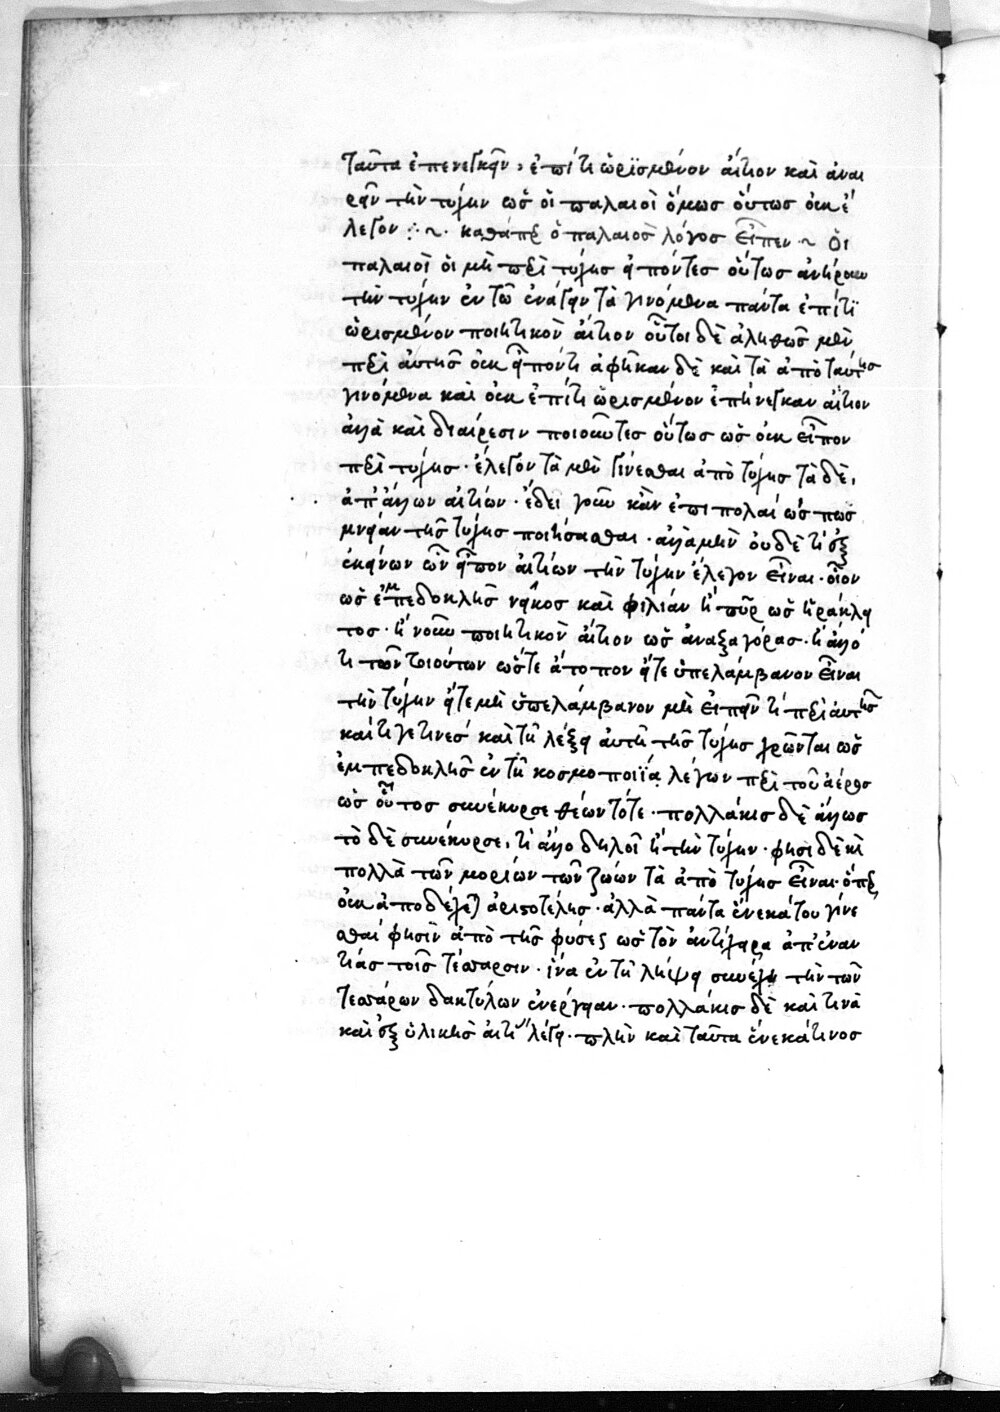 ταῦτα ἐπενεγκεῖν, ἐπί τι ὡρισμένον αἴτιον καὶ ἀναι
ρεῖν τὴν τύχην ὡς οἱ παλαιοὶ ὅμως οὕτως οὐκ ἔ
λεγον ⁘ ~ · καθάπερ ὁ παλαιὸς λόγος εἶπεν ~ Οἱ
παλαιοὶ οἱ μὴ περὶ τύχης εἰπόντες οὕτως ἀνῄρουν
τὴν τύχην ἐν τῷ ἀνάγειν τὰ γινόμενα πάντα ἐπί τι
ὡρισμένον ποιητικὸν αἴτιον οὗτοι δὲ ἀληθῶς μὲν
περὶ αὐτῆς οὐκ εἰπόντες ἀφῆκαν δὲ καὶ τὰ ἀπὸ ταύτης
γινόμενα καὶ οὐκ ἐπί τι ὡρισμένον ἐπήνεγκαν αἴτιον
ἀλλὰ καὶ διαίρεσιν ποιοῦντες οὕτως ὡς οὐκ εἶπον
περὶ τύχης · ἔλεγον τὰ μὲν γίνεσθαι ἀπὸ τύχης τὰ δὲ,
ἀπ' ἄλλων αἰτίων · ἔδει γοῦν κἂν ἐπιπολαίως πως
μνείαν τῆς τύχης ποιήσασθαι · ἀλλὰ μὴν οὐδέ τι ἐξ
ἐκείνων ὧν εἶπον αἰτίων τὴν τύχην ἔλεγον εἶναι · οἷον
ὡς ἐμπεδοκλῆς νεῖκος καὶ φιλίαν ἢ πῦρ ὡς ἡράκλει
τος · ἢ νοῦν ποιητικὸν αἴτιον ὡς ἀναξαγόρας · ἢ ἄλλό
τι τῶν τοιούτων ὥστε ἄτοπον εἴτε ὑπελάμβανον εἶναι
τὴν τύχην εἴτε μὴ ὑπελάμβανον μὴ εἰπεῖν τι περὶ αὐτῆς
καίτι γέ τινες καὶ τῇ λέξει αὐτῇ τῆς τύχης χρῶνται ὡς
ἐμπεδοκλῆς ἐν τῇ κοσμοποιΐᾳ λέγων περὶ τοῦ ἀέρος
ὡς οὗτος συνέκυρσε θέων τότε · πολλάκις δὲ ἄλλως
τὸ δὲ συνέκυρσε, τί ἄλλο δηλοῖ ἢ τὴν τύχην · φησὶ δὲ καὶ
πολλὰ τῶν μορίων τῶν ζώων τὰ ἀπὸ τύχης εἶναι · ὅπερ
οὐκ ἀποδέχεται ἀριστοτέλης · ἀλλὰ πάντα ἕνεκά του γίνε
σθαί φησιν ἀπὸ τῆς φύσεως ὡς τὸν ἀντίχειρα ἀπ' ἐναν
τίας τοῖς τέσσαρσιν · ἵνα ἐν τῇ λήψει συνέχῃ τὴν τῶν
τεσσάρων δακτύλων ἐνέργειαν · πολλάκις δὲ καί τινα
καὶ ἐξ ὑλικῆς αἰτίας λέγει · πλὴν καὶ ταῦτα ἕνεκά τινος